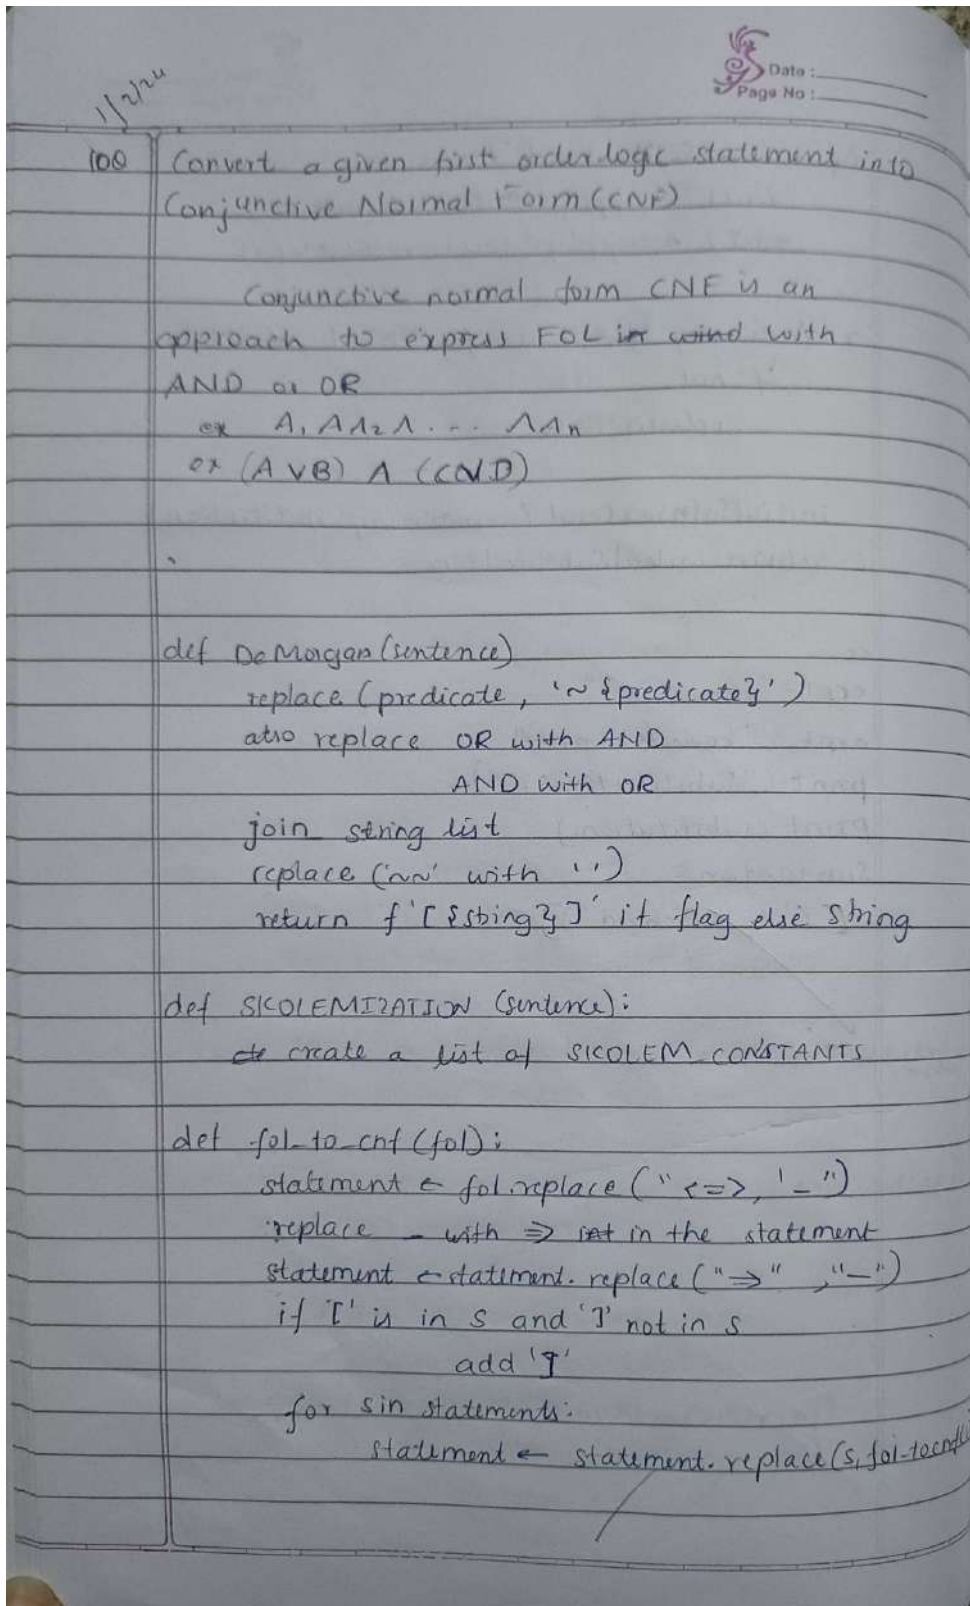 Date :
Page No :
1/2/24
100 Convert a given first order logic statement into
Conjunctive Normal Form (CNF)
Conjunctive normal form CNF is an
approach to express FOL in wind with
AND or OR
ex A1 ∧ A2 ∧ ... ∧ An
ex (A ∨ B) ∧ (C ∨ D)
def DeMorgan (sentence)
replace (predicate, '~ {predicate}')
also replace OR with AND
AND with OR
join string list
replace ('~~' with '')
return f '[{string}]' if flag else string
def SKOLEMIZATION (sentence):
create a list of SKOLEM CONSTANTS
def fol_to_cnf (fol):
statement ← fol.replace ("<=>, '_")
replace _ with ⇒ in the statement
statement ← statement.replace ("⇒" , "—")
if '[' is in s and ']' not in s
add ']'
for s in statements:
statement ← statement.replace (s, fol-tocnf(